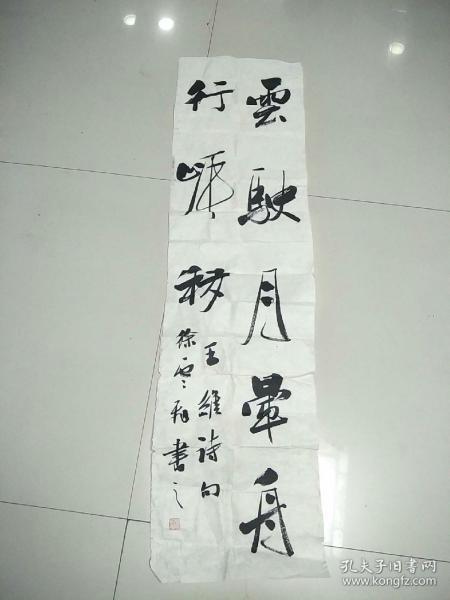 雲駛月暈舟
行岸移
王維詩句
徐雲 書之
孔夫子旧书网
www.kongfz.com